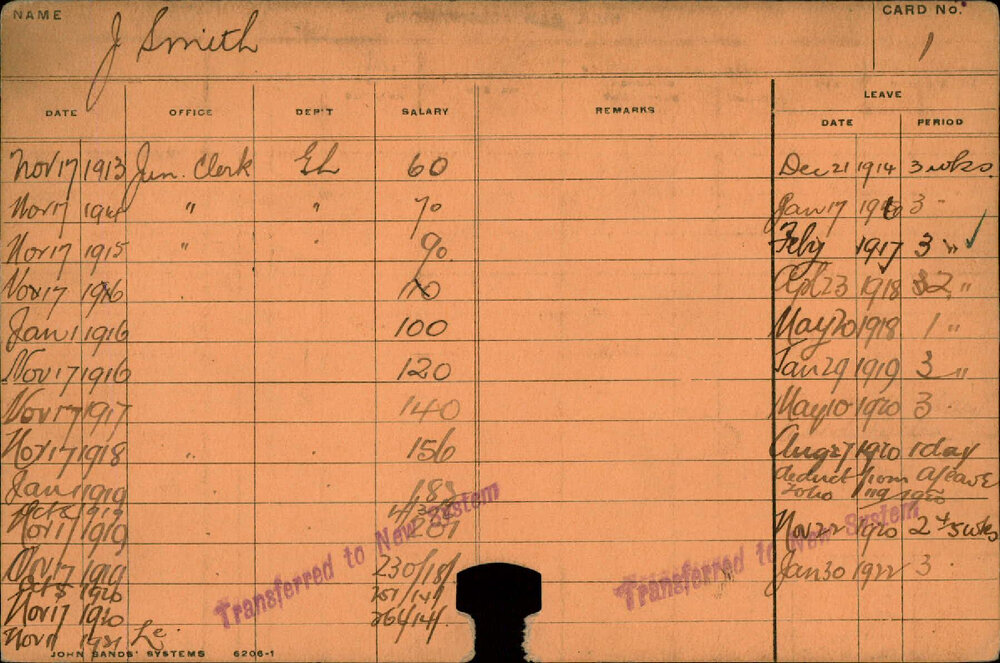 NAME J Smith CARD No. 1
DATE OFFICE DEP'T SALARY REMARKS LEAVE
DATE PERIOD
Nov 17 1913 Jun. Clerk 60 Dec 21 1914 3 wks.
Nov 17 " " 70 Jan 17 3 "
Nov 17 1915 " " 90 Feby 1917 3 " ✓
Nov 17 1916 Apl 23 1918 2 "
Jan 1 1916 100 May 20 1918 1 "
Nov 17 1916 120 Jan 29 1919 3 "
Nov 17 1917 140 May 10 1920 3 "
Nov 17 1918 " 156 Aug 27 1920 1 day
Jan 1 1919 deduct from
Nov 17 1919 Nov 22 1920 wks
Nov 17 1919 230/18/ Jan 30 1922 3
1920
Nov 17 1920 264/14/
Nov 17 1921
Transferred to New System
Transferred to New System
JOHN SANDS' SYSTEMS 6206-1